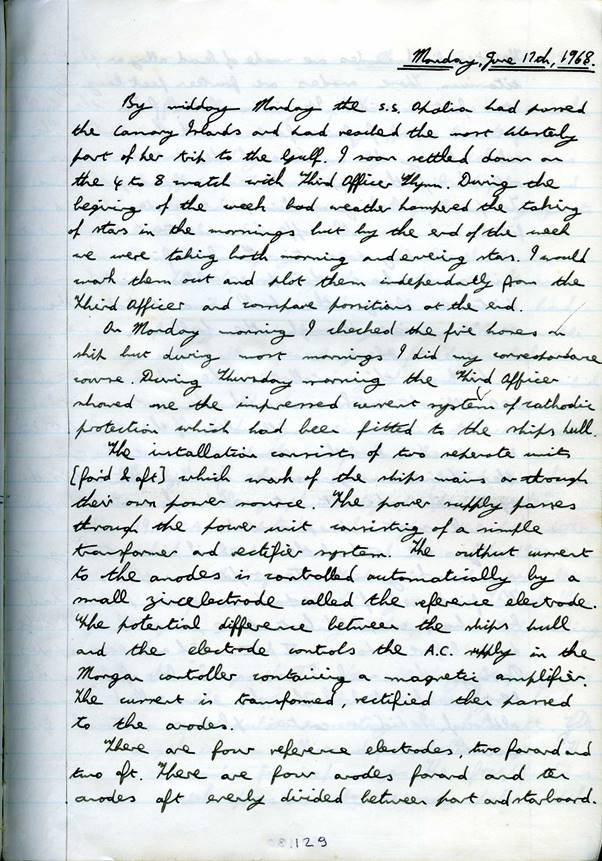 Monday, June 17th, 1968.
By midday Monday the s.s. Opalia had passed
the Canary Islands and had reached the most Westerly
part of her trip to the Gulf. I soon settled down on
the 4 to 8 watch with Third Officer Flynn. During the
begining of the week bad weather hampered the taking
of stars in the mornings but by the end of the week
we were taking both morning and evening stars. I would
work them out and plot them independantly from the
Third Officer and compare positions at the end.
On Monday morning I checked the fire hoses on
ship but during most mornings I did my correspondance
course. During Thursday morning the Third Officer
showed me the impressed current system of cathodic
protection which had been fitted to the ships hull.
The installation consists of two seperate units
[for'd & aft] which work of the ships mains or through
their own power source. The power supply passes
through the power unit consisting of a simple
transformer and rectifier system. The output current
to the anodes is controlled automatically by a
small zinc electrode called the reference electrode.
The potential difference between the ships hull
and the electrode controls the A.C. supply in the
Morgan controller containing a magnetic amplifier.
The current is transformed, rectified then passed
to the anodes.
There are four reference electrodes, two forard and
two aft. There are four anodes forard and ten
anodes aft evenly divided between port and starboard.
129